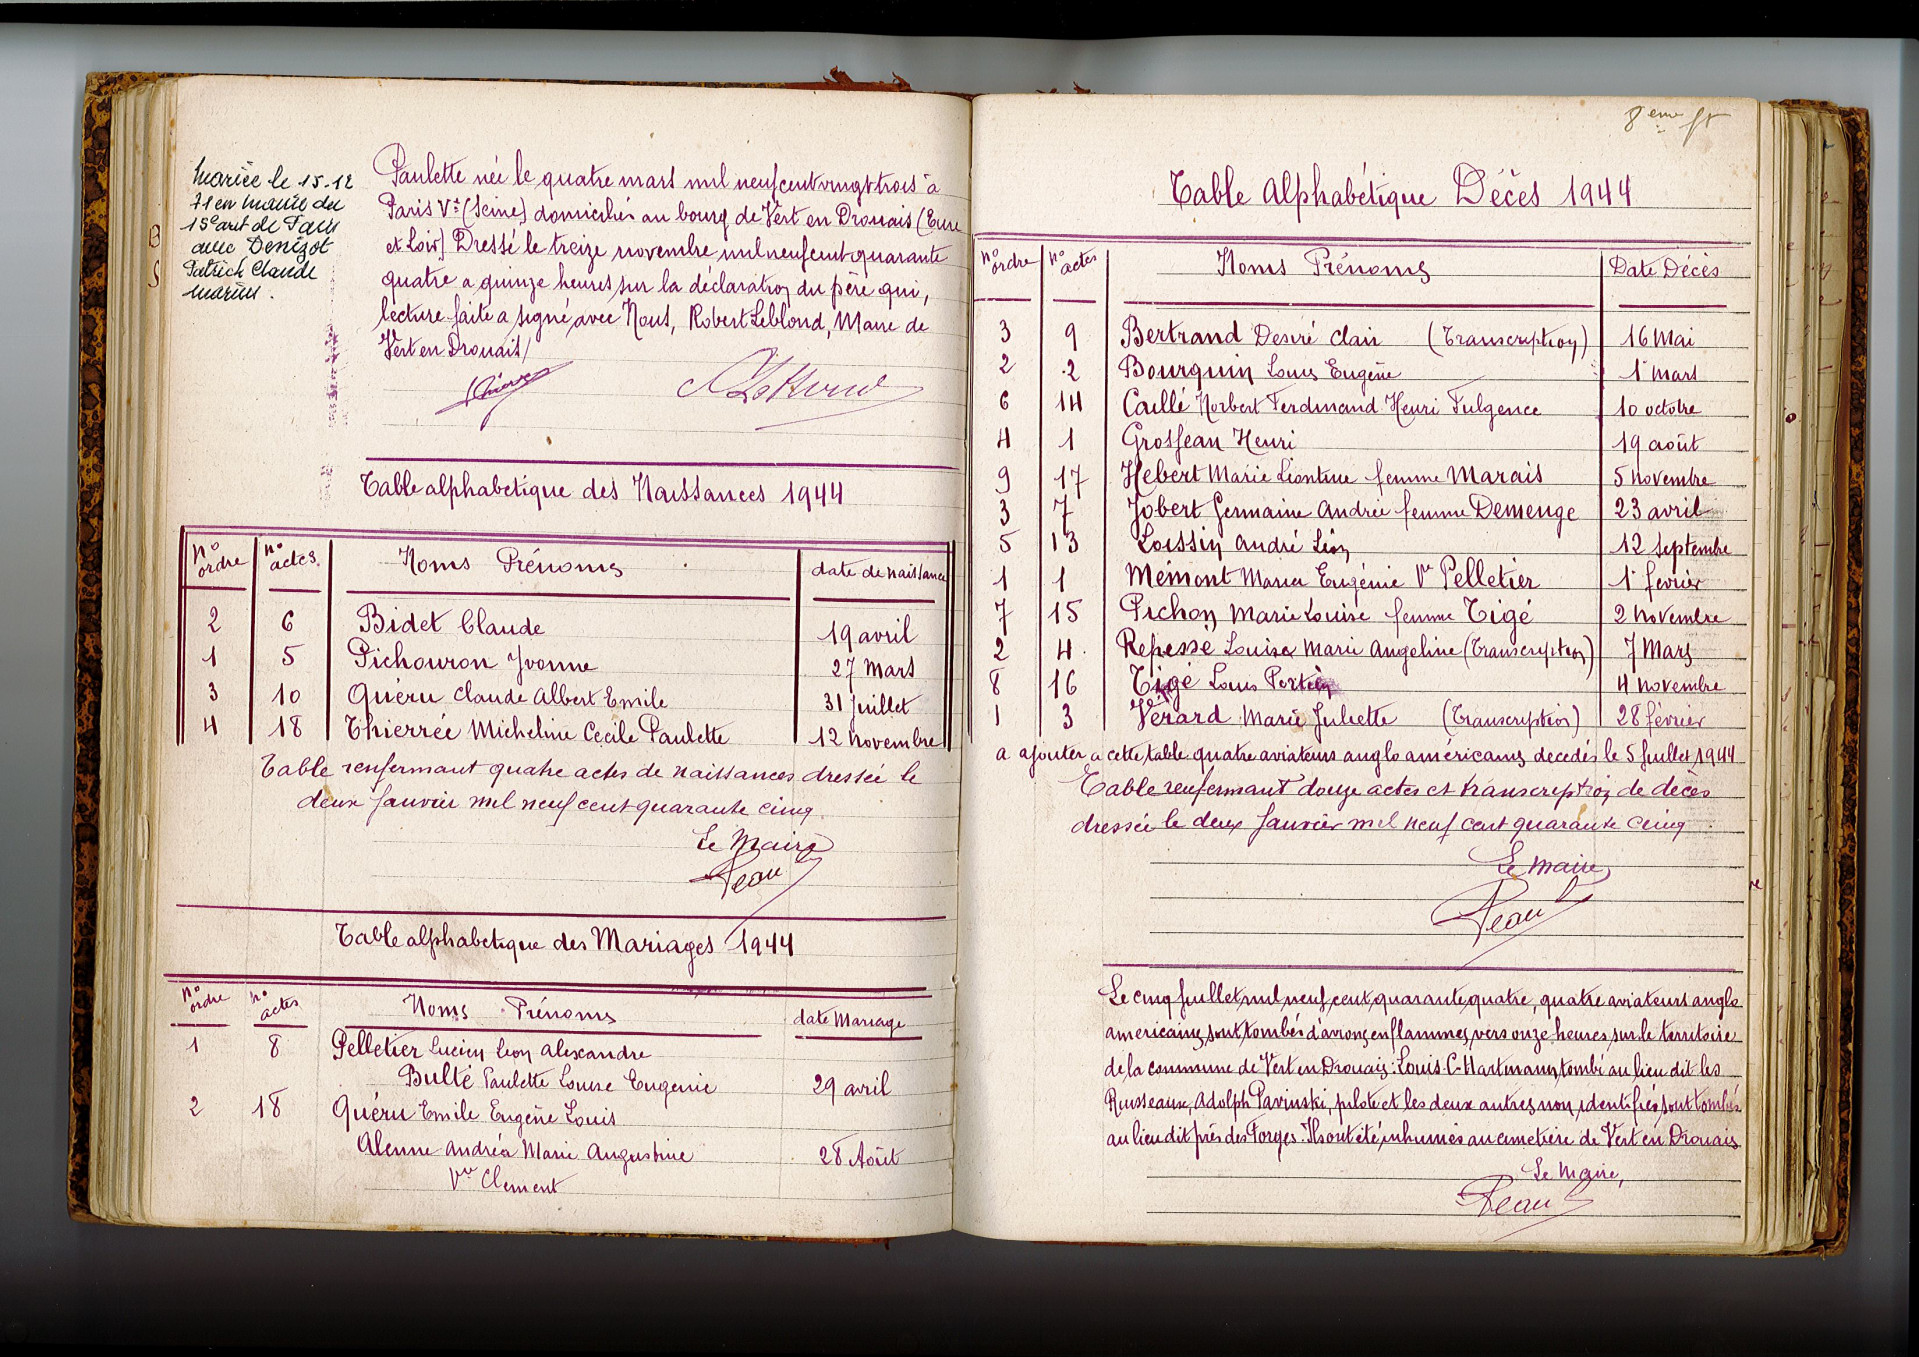 mariée le 15.12
71 en mairie du
15e art de Paris
avec Denizot
Patrick Claude
Marius.
Paulette née le quatre mars mil neuf cent vingt trois à
Paris Ve (Seine) domiciliés au bourg de Vert en Drouais (Eure
et Loir) Dressé le treize novembre mil neuf cent quarante
quatre a quinze heures sur la déclaration du père qui,
lecture faite a signé avec Nous, Robert Leblond, Maire de
Vert en Drouais/
Table alphabetique des Naissances 1944
N° ordre N° actes. Noms Prénoms date de naissance
2 6 Bidet Claude 19 avril
1 5 Pichouron Yvonne 27 Mars
3 10 Quéru Claude Albert Emile 31 Juillet
4 18 Thierrée Micheline Cecile Paulette 12 Novembre
Table renfermant quatre actes de naissances dressée le
deux Janvier mil neuf cent quarante cinq.
Le Maire
Peau
Table alphabetique des Mariages 1944
N° ordre N° actes Noms Prénoms date Mariage
1 8 Pelletier Lucien Leon Alexandre
Bulté Paulette Louise Eugenie 29 avril
2 18 Quéru Emile Eugène Louis
Alenne Andréa Marie Augustine 28 Août
Vve Clement
8 eme ft
Table Alphabétique Décès 1944
N° ordre N° actes Noms Prénoms Date Décès
3 9 Bertrand Desiré Clair (Transcription) 16 Mai
2 2 Bourguin Louis Eugène 1er mars
6 14 Caillé Norbert Ferdinand Henri Fulgence 10 octobre
4 1 Grosjean Henri 19 août
9 17 Hébert Marie Léontine femme Marais 5 Novembre
3 7 Jobert Germaine Andrée femme Demenge 23 avril
5 13 Loissin André Léon 12 septembre
1 1 Mémont Maria Eugénie Ve Pelletier 1er février
7 15 Pichon Marie Louise femme Tigé 2 Novembre
2 4 Repesse Louisa Marie Angeline (Transcription) 7 Mars
8 16 Tigé Louis 4 novembre
1 3 Vérard Marie Juliette (Transcription) 28 février
a ajouter a cette table quatre aviateurs anglo américains decedés le 5 Juillet 1944
Table renfermant douze actes et transcription de décès
dressée le deux Janvier mil neuf cent quarante cinq.
Le Maire
Peau
Le cinq Juillet mil neuf cent quarante quatre, quatre aviateurs anglo
americains sont tombés d'avions en flammes, vers onze heures sur le territoire
de la commune de Vert en Drouais: Louis C. Hartmann, tombé au lieu dit les
Ruisseaux, Adolph Pavinski, pilote et les deux autres non identifiés sont tombés
au lieu dit près des Forges. Ils ont été inhumés au cimetière de Vert en Drouais
Le Maire,
Peau